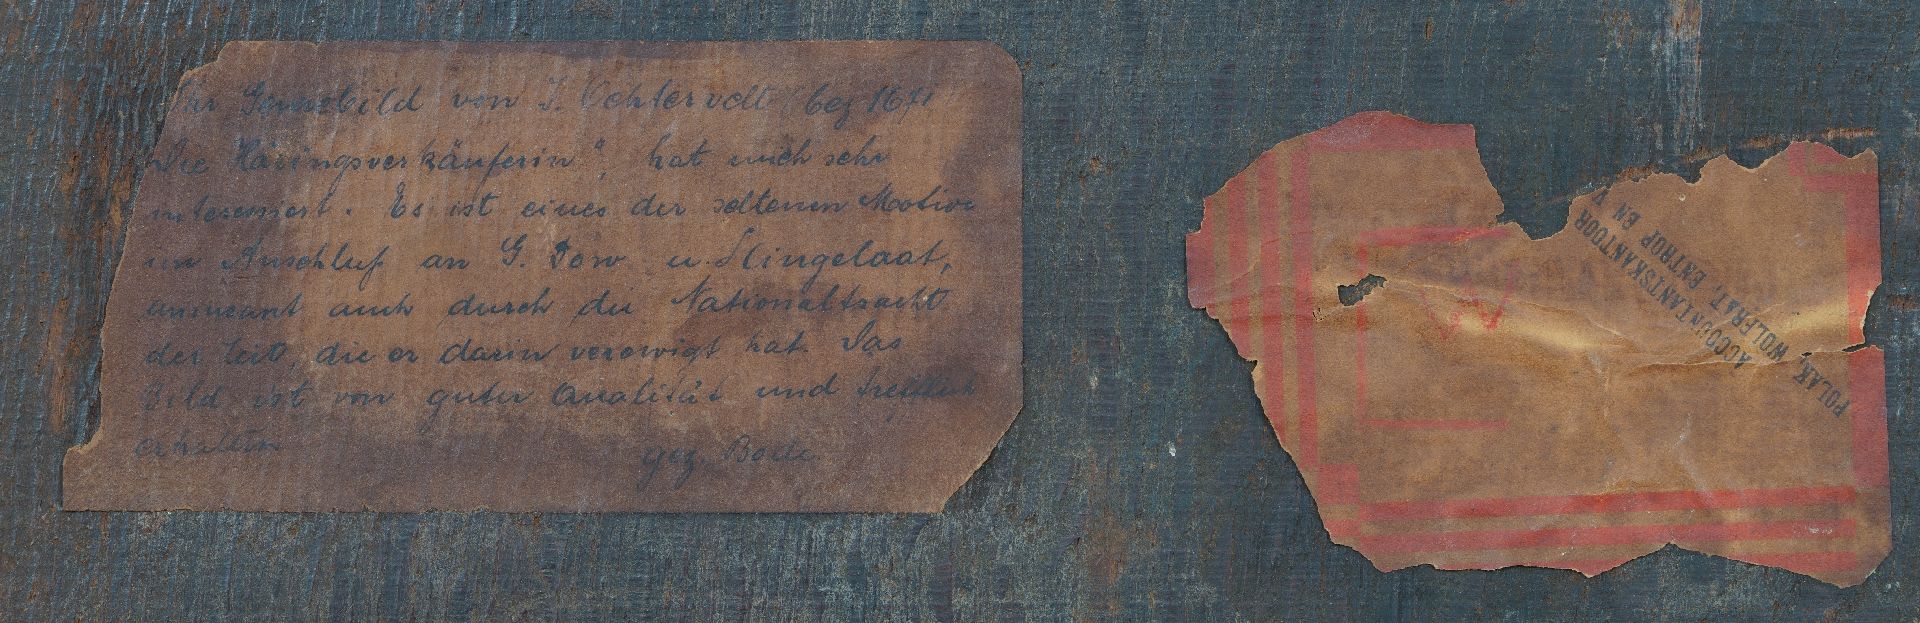 Ihr Genrebild von J. Ochtervelt (bez 1671
Die Häringsverkäuferin", hat mich sehr
interessiert. Es ist eines der seltenen Motive
im Anschluß an G. Dow u. Slingelaat,
amüsant auch durch die Nationaltracht
der Zeit, die er darin verewigt hat. Das
Bild ist von guter Qualität und trefflich
erhalten
gez. Bode.
W
POLAK, WOLFRAT, ENTROP EN V
ACCOUNTANTSKANTOOR